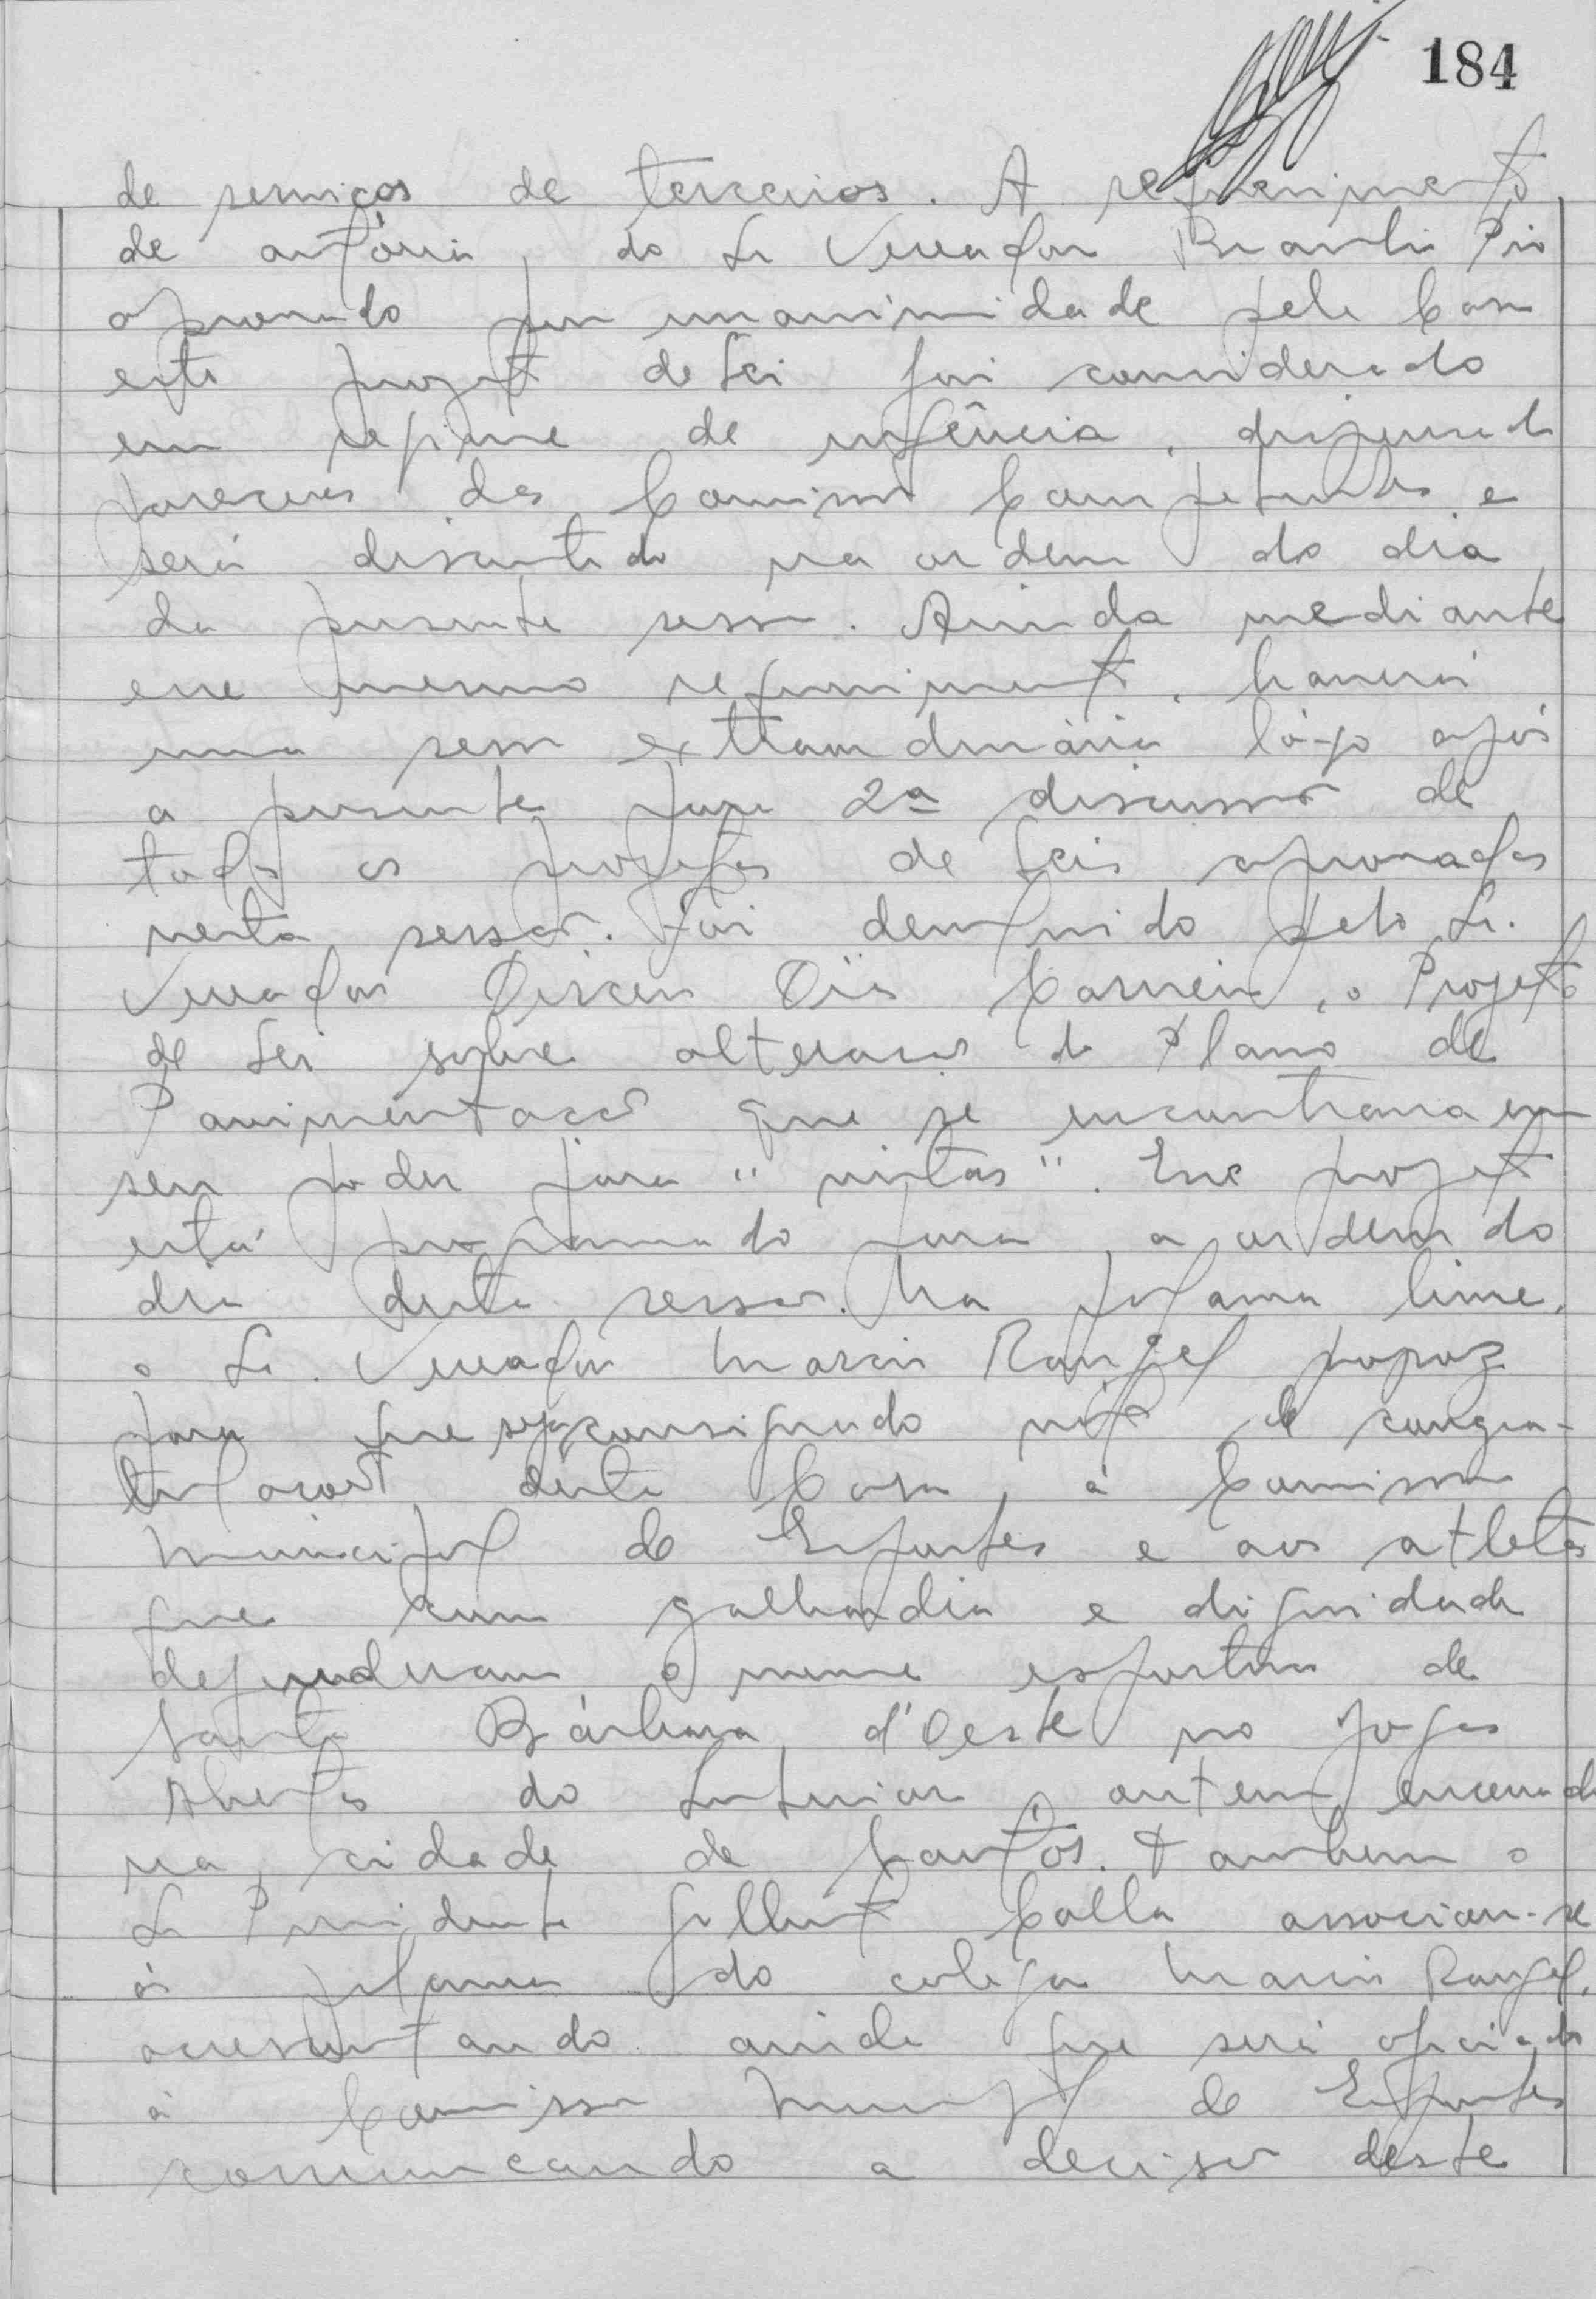 184
de serviços de terceiros. A requerimento
de autoria, do Sr Vereador Braulio Pio
aprovado por unanimidade pela Casa
este projeto de Lei foi considerado
em regime de urgência, dispensado
pareceres das Comissões Competentes e
será discutido na ordem do dia
da presente sessão. Ainda mediante
esse mesmo requerimento, haverá
uma sessão extraordinária lógo após
a presente para 2ª discussão de
todos os projetos de Leis aprovados
nesta sessão. Foi devolvido pelo Sr.
Vereador Dirceu Dias Carneiro, o Projeto
de Lei sobre alteração do Plano de
Pavimentação que se encontrava em
seu poder para "vistas". Esse projeto
está programado para a ordem do
dia desta sessão. Na palavra livre,
o Sr. Vereador Marcio Rangel propoz
para que seja consignado voto de congra-
tulação desta Casa, à Comissão
Municipal de Esportes e aos atletas
que com galhardia e dignidade
defenderam o nome esportivo de
Santa Bárbara d'Oeste no Jogos
Abertos do Interior, ontem encerrado
na cidade de Santos. Tambem o
Sr Presidente Gilberto Calla associou-se
às palavras do colega Marcio Rangel,
acrescentando ainda que será oficiado
à Comissão Municipal de Esportes
comunicando a decisão deste